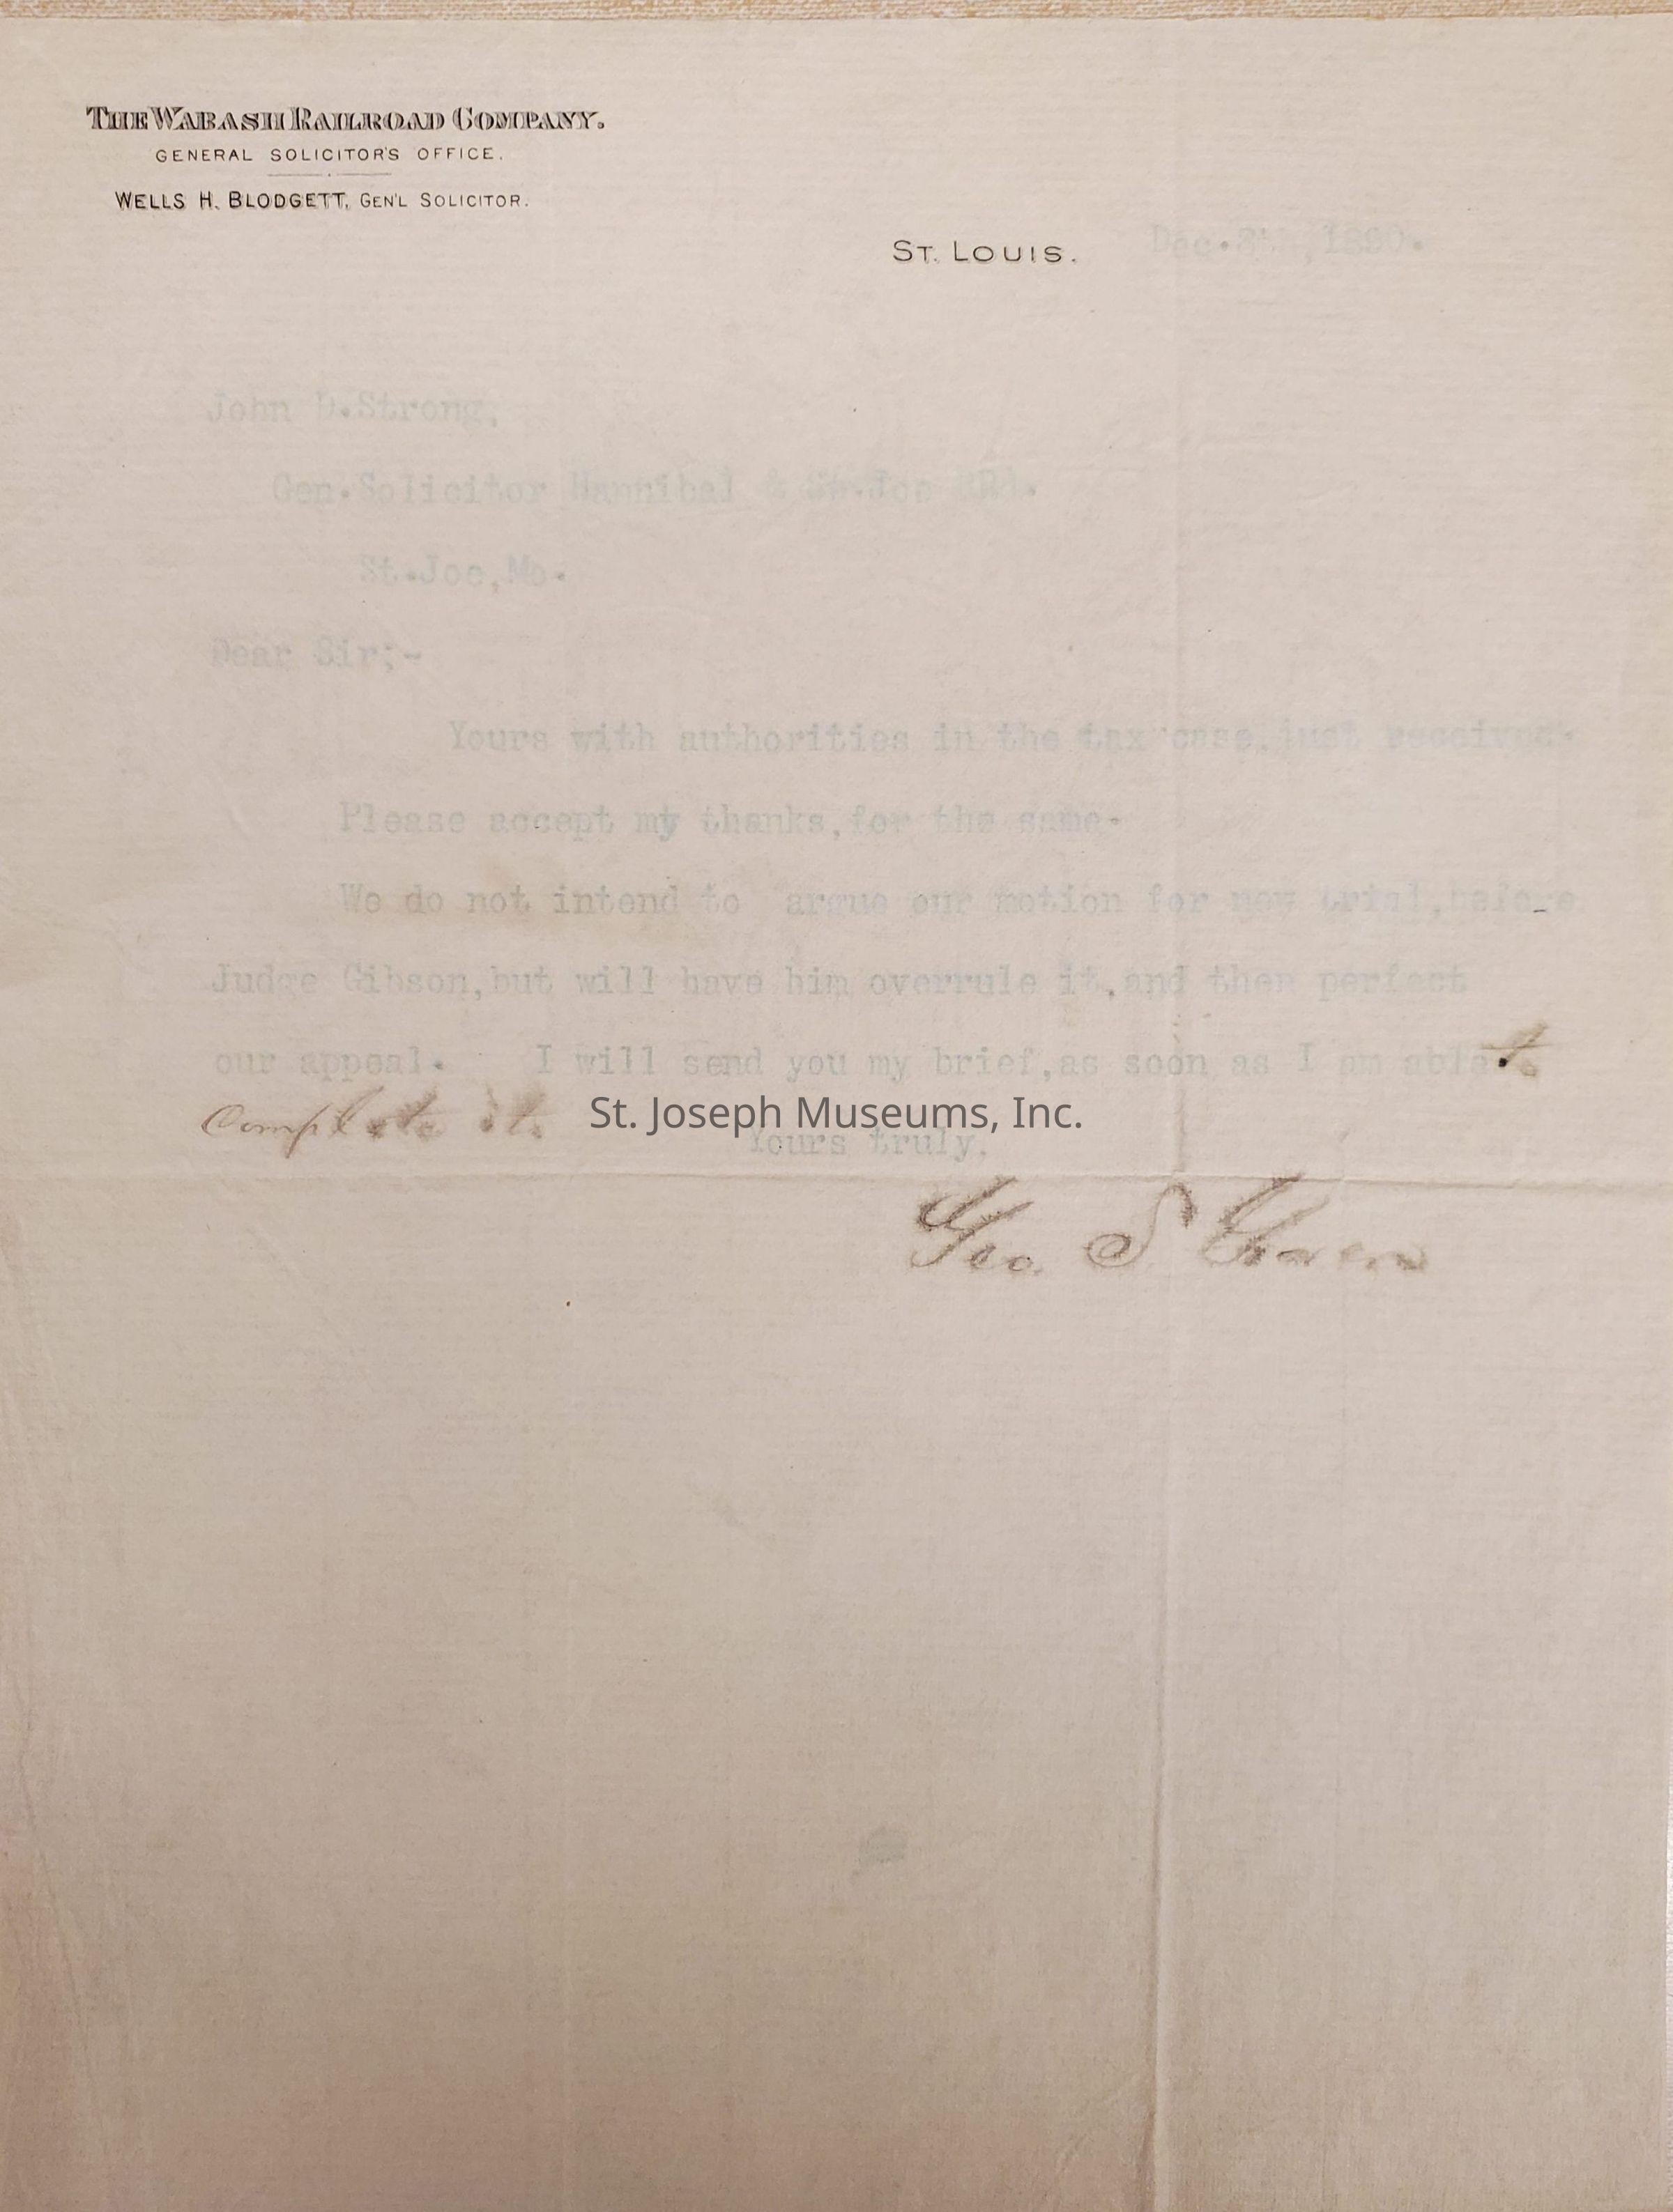 THE WABASH RAILROAD COMPANY.
GENERAL SOLICITOR'S OFFICE.
WELLS H. BLODGETT, GEN'L SOLICITOR.
ST. LOUIS. Dec. 8th, 1890.
John D. Strong,
Gen. Solicitor Hannibal & St. Joe RRd.
St. Joe, Mo.
Dear Sir;-
Yours with authorities in the tax case, just received.
Please accept my thanks, for the same.
We do not intend to argue our motion for new trial, before
Judge Gibson, but will have him overrule it, and then perfect
our appeal. I will send you my brief, as soon as I am able to
complete it.
St. Joseph Museums, Inc.
Yours truly.
Geo. S